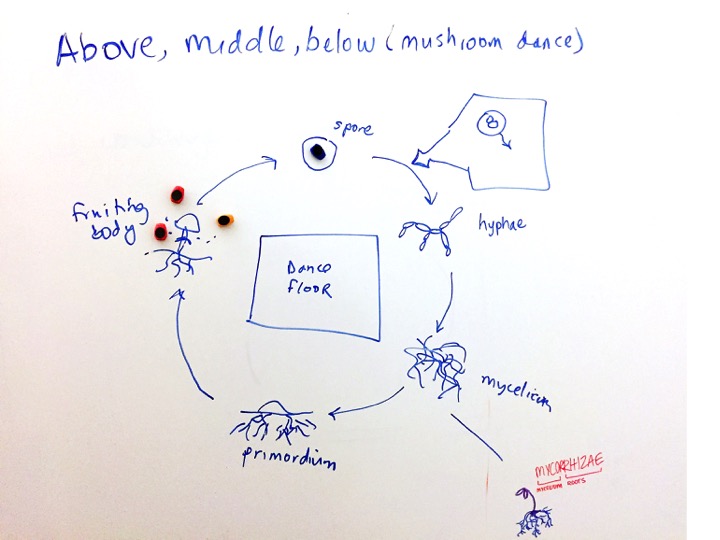 Above, middle, below (mushroom dance)
spore
8
fruiting
body
hyphae
DANCE
FLOOR
mycelium
primordium
MYCORRHIZAE
ROOTS